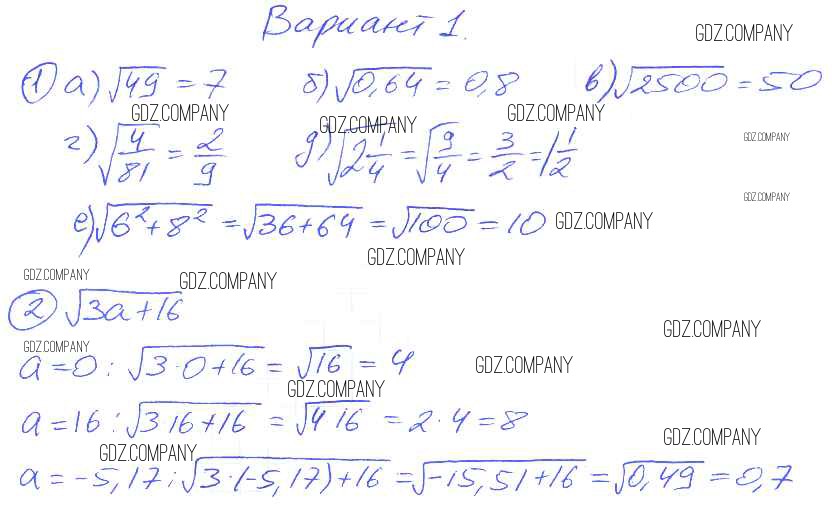 Вариант 1.
GDZ.COMPANY
① а) √49 = 7 б) √0,64 = 0,8 в) √2500 = 50
GDZ.COMPANY GDZ.COMPANY GDZ.COMPANY
г) √4/81 = 2/9 д) √2 1/4 = √9/4 = 3/2 = 1 1/2
GDZ.COMPANY
GDZ.COMPANY
е) √6²+8² = √36+64 = √100 = 10 GDZ.COMPANY
GDZ.COMPANY
GDZ.COMPANY GDZ.COMPANY
② √3a+16
GDZ.COMPANY
GDZ.COMPANY
a = 0 : √3·0+16 = √16 = 4 GDZ.COMPANY
GDZ.COMPANY
a = 16 : √3 16+16 = √4 16 = 2·4 = 8
GDZ.COMPANY
GDZ.COMPANY
a = -5,17 : √3·(-5,17)+16 = √-15,51+16 = √0,49 = 0,7